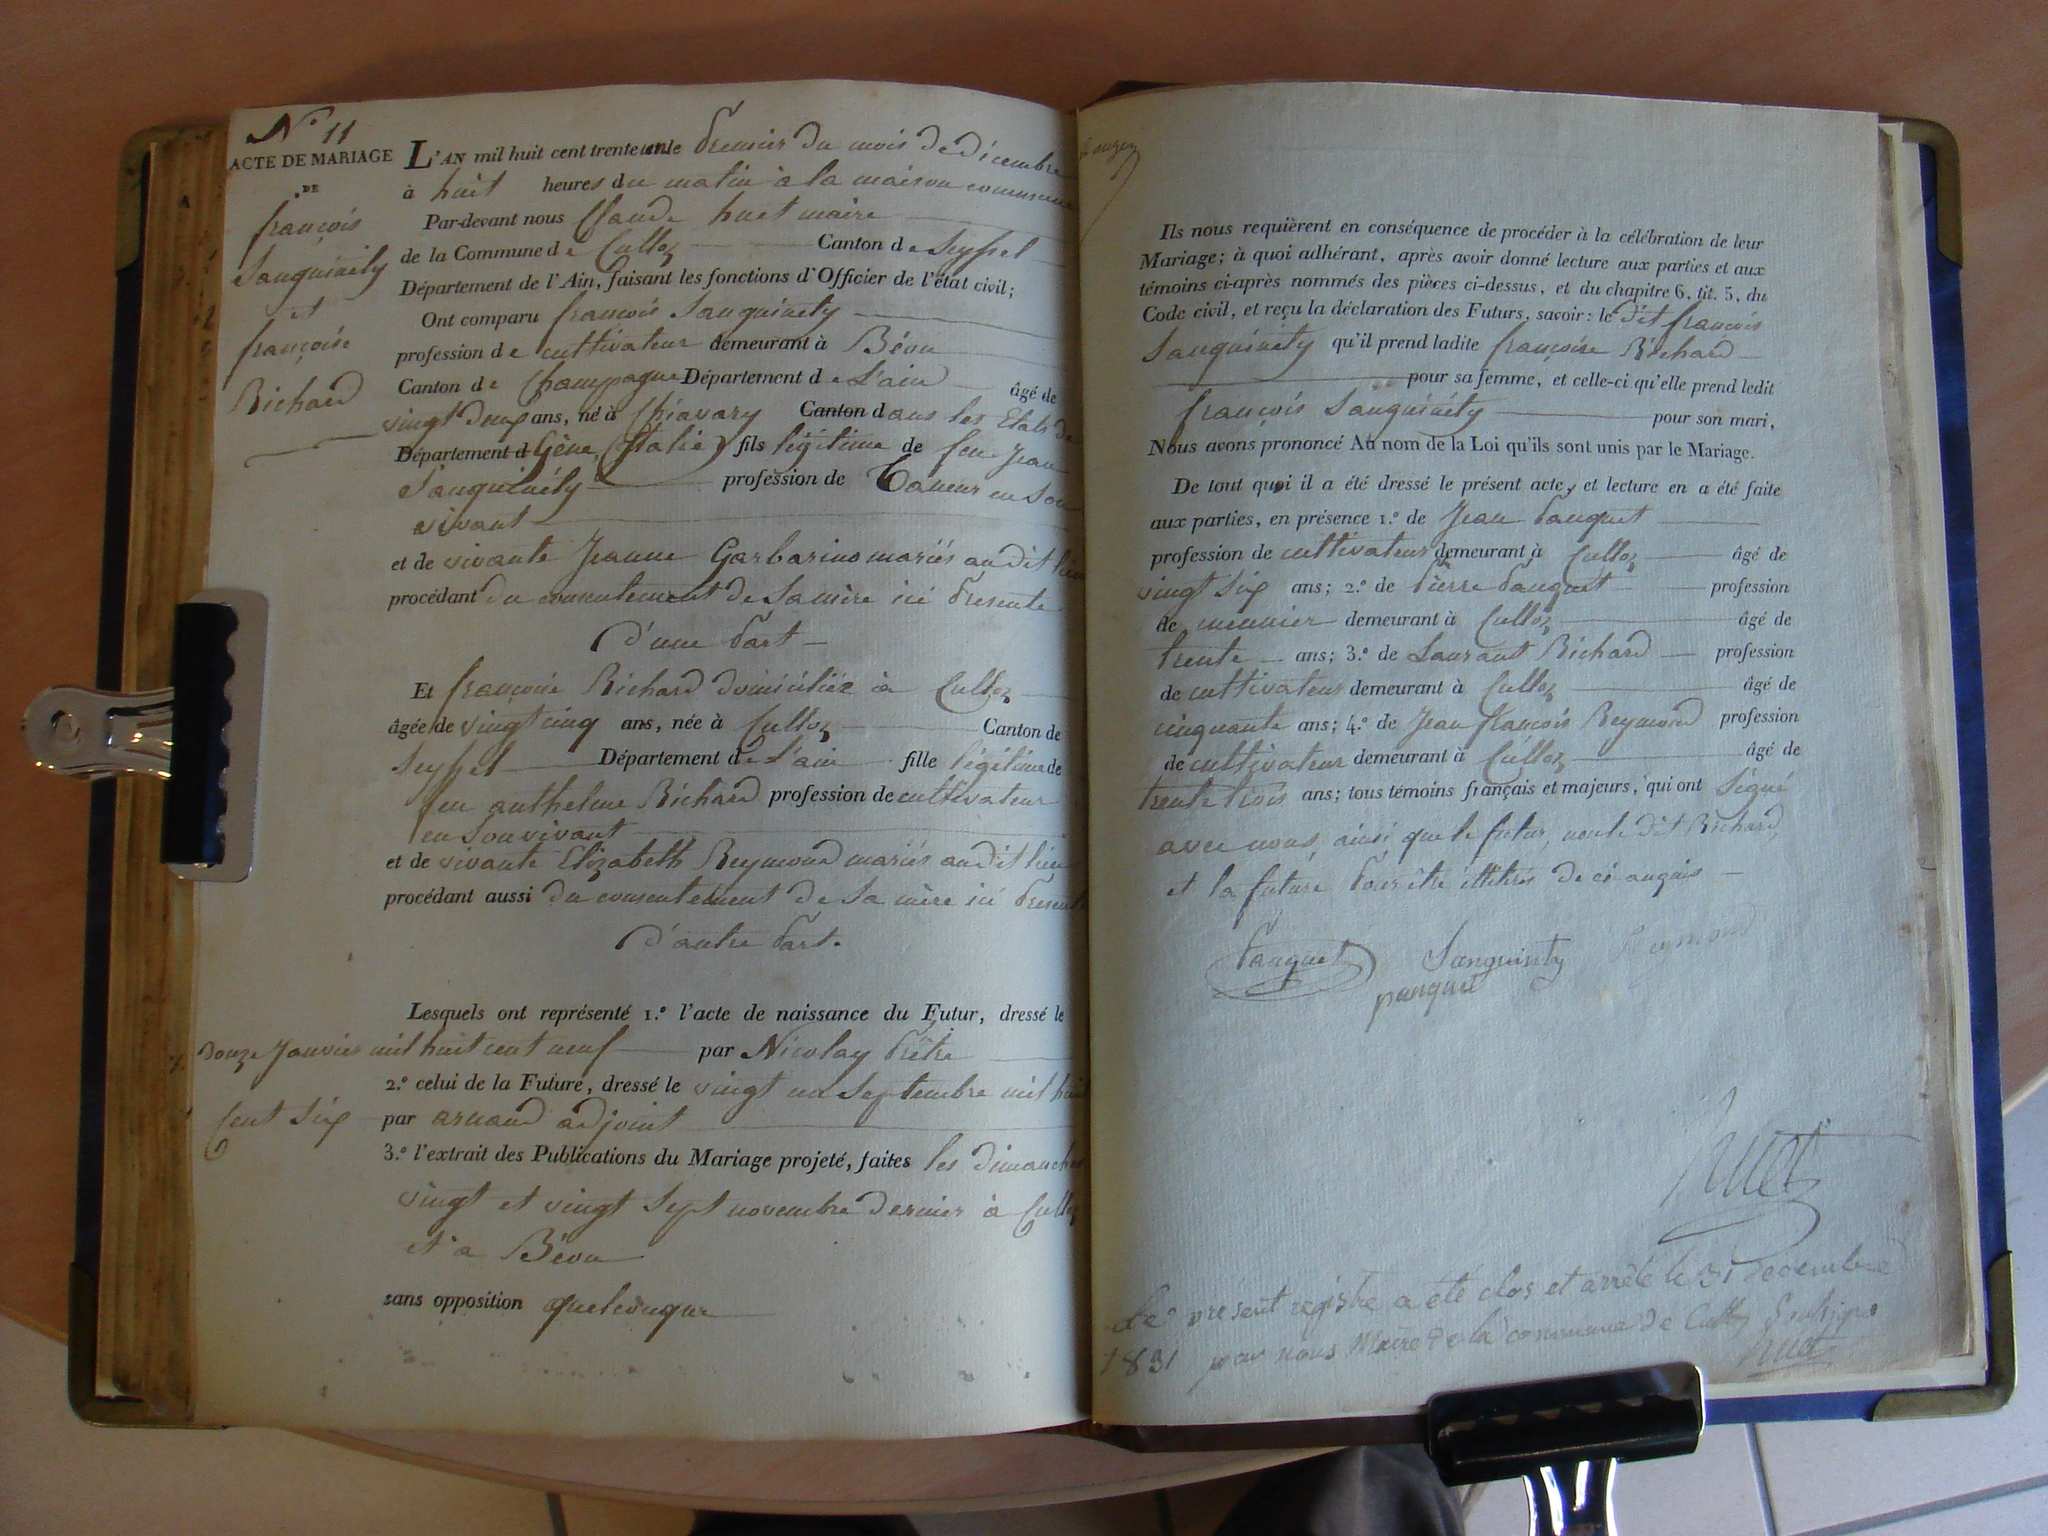 N.° 11
ACTE DE MARIAGE
DE
françois
Sanguinéty
et
françoise
Richard
L'AN mil huit cent trente un le premier du mois de décembre
à huit heures du matin à la maison commune
Par-devant nous Claude huet maire
de la Commune de Culloz Canton de Seyssel
Département de l'Ain, faisant les fonctions d'Officier de l'état civil;
Ont comparu françois Sanguinéty
profession de cultivateur demeurant à Béon
Canton de Champagne Département de L'ain âgé de
vingt deux ans, né à Chiavary Canton dans les Etats de
Département d Gène (Italie) fils légitime de feu Jean
Sanguinéty profession de Taneur en son
vivant
et de vivante Jeanne Garbarino mariés audit lieu
procédant du consentement de Sa mère ici présente
d'une part
Et françoise Richard domiciliée à Culloz
âgée de vingt cinq ans, née à Culloz Canton de
Seyssel Département de L'ain fille légitime de
feu anthelme Richard profession de cultivateur
en Son vivant
et de vivante Elizabeth Reymond mariés audit lieu
procédant aussi du consentement de Sa mère ici présente
d'autre part.
Lesquels ont représenté 1.° l'acte de naissance du Futur, dressé le
douze Janvier mil huit cent neuf par Nicolay prêtre
2.° celui de la Future, dressé le vingt un Septembre mil huit
cent Six par arnaud adjoint
3.° l'extrait des Publications du Mariage projeté, faites les dimanches
vingt et vingt Sept novembre dernier à Culloz
et à Béon
sans opposition quelconque
Ils nous requièrent en conséquence de procéder à la célébration de leur
Mariage; à quoi adhérant, après avoir donné lecture aux parties et aux
témoins ci-après nommés des pièces ci-dessus, et du chapitre 6, tit. 5, du
Code civil, et reçu la déclaration des Futurs, savoir: le dit françois
Sanguinéty qu'il prend ladite françoise Richard
pour sa femme, et celle-ci qu'elle prend ledit
françois Sanguinéty pour son mari,
Nous avons prononcé Au nom de la Loi qu'ils sont unis par le Mariage.
De tout quoi il a été dressé le présent acte, et lecture en a été faite
aux parties, en présence 1.° de Jean pauguet
profession de cultivateur demeurant à Culloz âgé de
vingt Six ans; 2.° de pierre pauguet profession
de meunier demeurant à Culloz âgé de
trente ans; 3.° de Laurant Richard profession
de cultivateur demeurant à Culloz âgé de
cinquante ans; 4.° de Jean françois Reymond profession
de cultivateur demeurant à Culloz âgé de
trente trois ans; tous témoins français et majeurs, qui ont Signé
avec nous ainsi que le futur, non le dit Richard
et la future pour être illitérés de ci anquis
pauguet Sanguinety Reymond
pauguet
huet
Le présent registre a été clos et arrêté le 31 décembre
1831 par nous Maire de la commune de Culloz Soussigné
huet